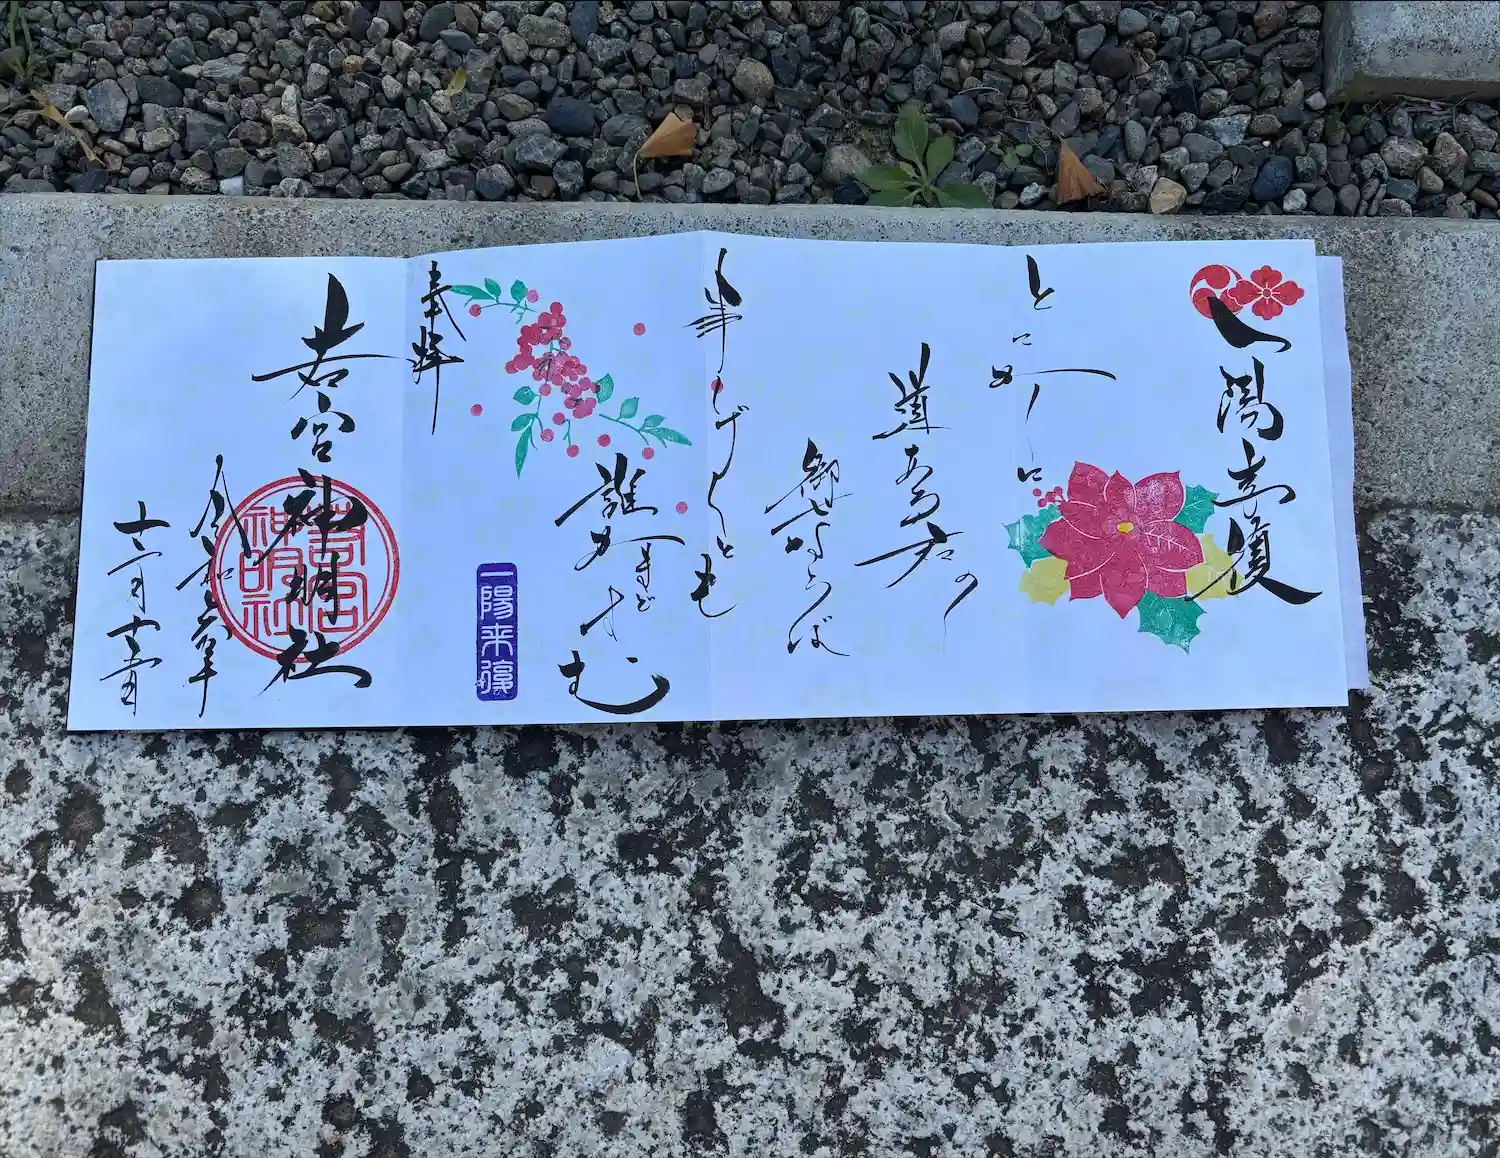 一陽来復
道ある君の
御世ならば
事しげくとも
誰かまどはむ
一陽来復
奉拝
若宮神明社
若宮神明社
令和六年
十二月